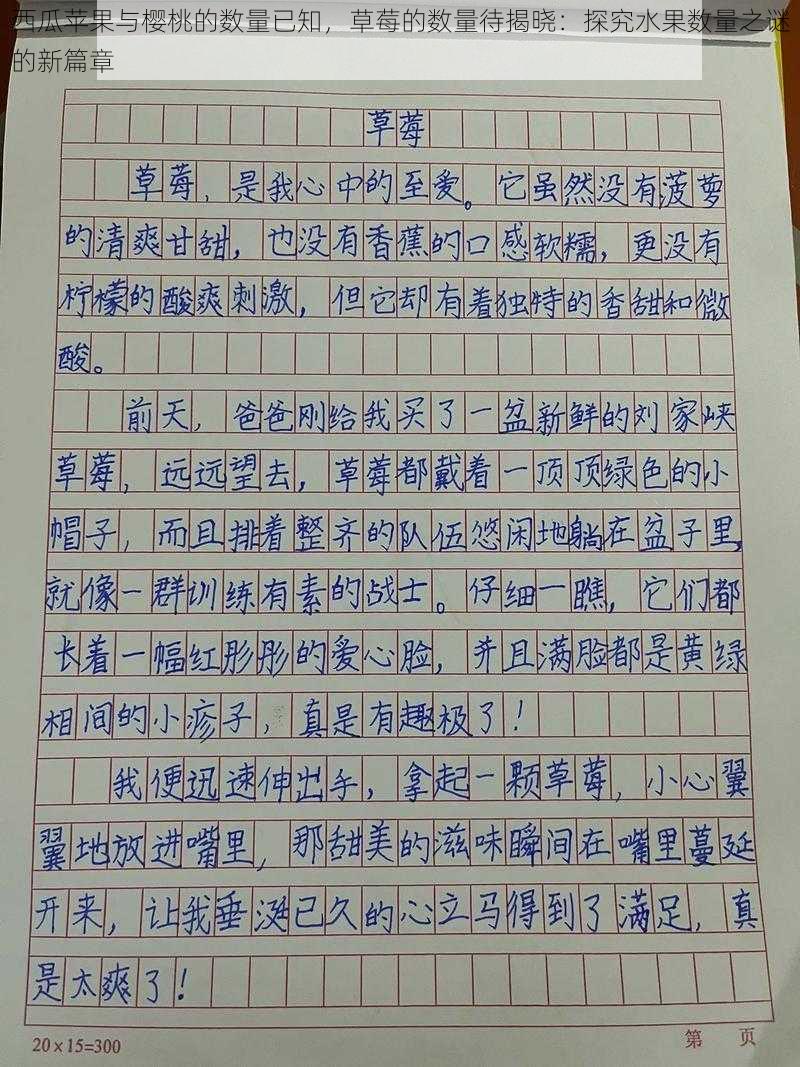 西瓜苹果与樱桃的数量已知，草莓的数量待揭晓：探究水果数量之谜
的新篇章
草莓
草莓，是我心中的至爱。它虽然没有菠萝
的清爽甘甜，也没有香蕉的口感软糯，更没有
柠檬的酸爽刺激，但它却有着独特的香甜和微
酸。
前天，爸爸刚给我买了一盆新鲜的刘家峡
草莓，远远望去，草莓都戴着一顶顶绿色的小
帽子，而且排着整齐的队伍悠闲地躺在盆子里，
就像一群训练有素的战士。仔细一瞧，它们都
长着一幅红彤彤的爱心脸，并且满脸都是黄绿
相间的小疹子，真是有趣极了！
我便迅速伸出手，拿起一颗草莓，小心翼
翼地放进嘴里，那甜美的滋味瞬间在嘴里蔓延
开来，让我垂涎已久的心立马得到了满足，真
是太爽了！
20×15=300
第 页